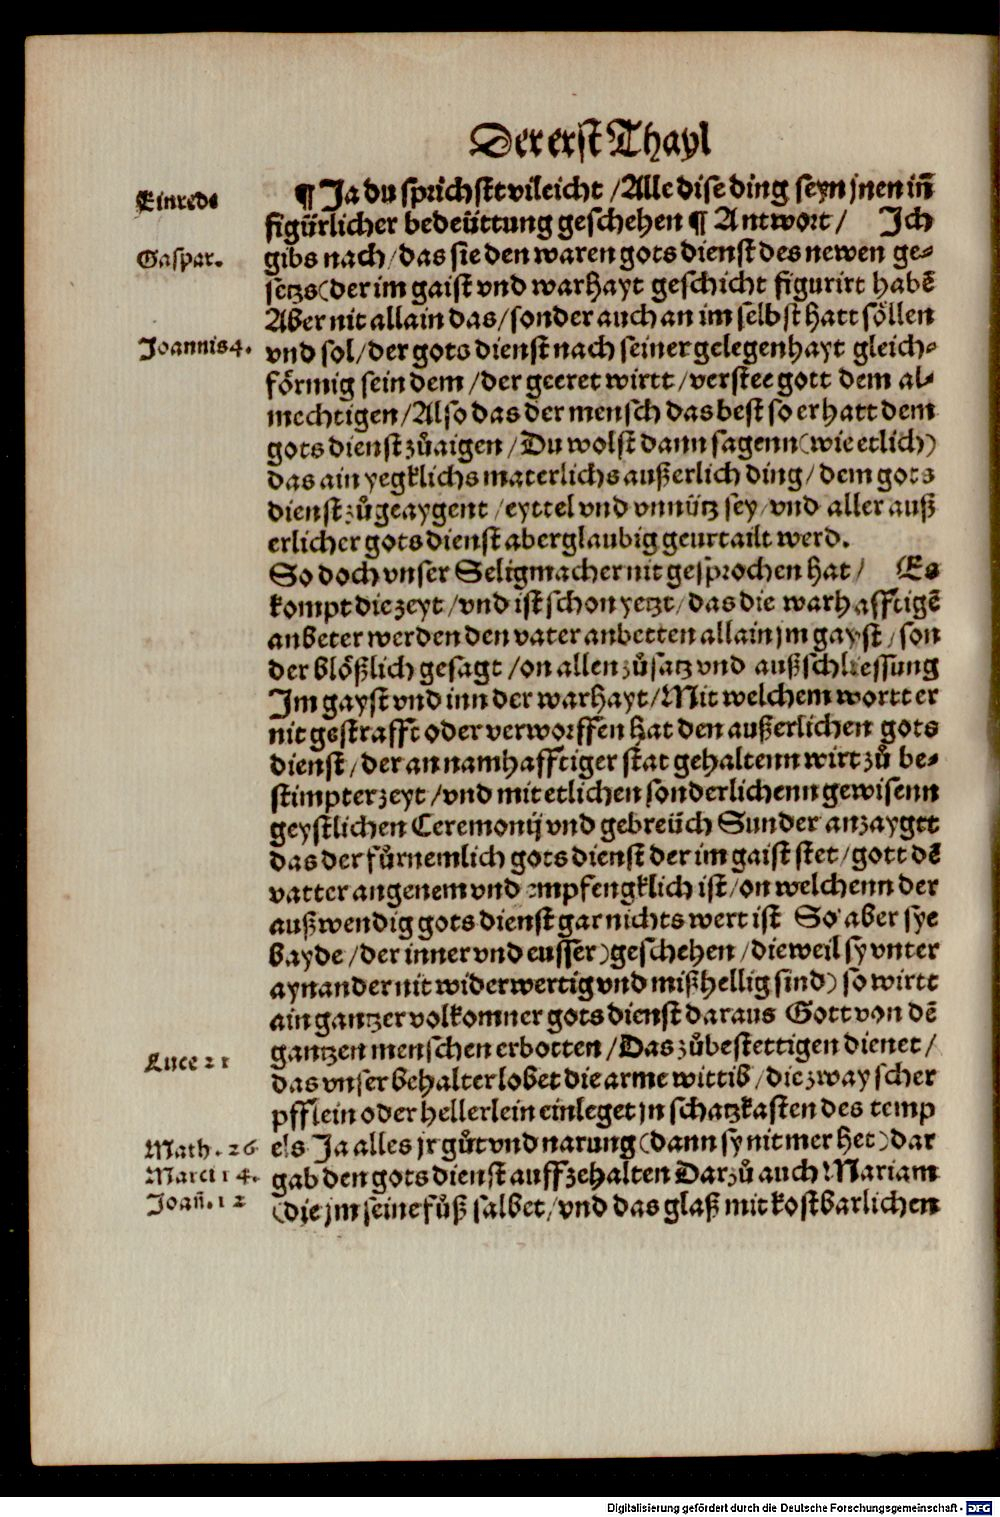 Der erst Thayl
Einrede
¶ Ja du sprichstt vileicht / Alle dise ding seyn jnen iñ
figürlicher bedeüttung geschehen ¶ Antwort / Ich
Gaspar.
gibs nach / das sie den waren gots dienst des newen ge-
setzs (der im gaist vnd warhayt geschicht figurirt habẽ
Aber nit allain das / sonder auch an im selbst hatt söllen
Joannis 4.
vnd sol / der gots dienst nach seiner gelegenhayt gleich-
förmig sein dem / der geeret wirtt / verstee gott dem al-
mechtigen / Also das der mensch das best so er hatt dem
gots dienst zůaigen / Du wolst dann sagenn (wie etlich)
das ain yegklichs materlichs außerlich ding / dem gots
dienst zůgeaygent / eyttel vnd vnnütz sey / vnd aller auß
erlicher gots dienst aberglaubig geurtailt werd.
So doch vnser Seligmacher nit gesprochen hat / Es
kompt die zeyt / vnd ist schon yetzt / das die warhafftigẽ
anbeter werden den vater anbetten allain jm gayst / son
der blößlich gesagt / on allen zůsatz vnd außschliessung
Im gayst vnd inn der warhayt / Mit welchem wortt er
nit gestrafft oder verworffen hat den außerlichen gots
dienst / der an namhafftiger stat gehaltenn wirt zů be-
stimpter zeyt / vnd mit etlichen sonderlichenn gewisenn
geystlichen Ceremonij vnd gebreüch Sunder anzaygtt
das der fürnemlich gots dienst der im gaist stet / gott dẽ
vatter angenem vnd empfengklich ist / on welchenn der
außwendig gots dienst gar nichts wert ist So aber sye
bayde / der inner vnd eusser) geschehen / die weil sy vnter
aynander nit widerwertig vnd mißhellig sind) so wirtt
ain gantzer volkomner gots dienst daraus Gott von dẽ
Luce 21
gantzen menschen erbotten / Das zůbestettigen dienet /
das vnser behalter lobet die arme wittib / die zway scher
pfflein oder hellerlein einleget jn schatzkasten des temp
Math. 26
els Ja alles jr gůt vnd narung (dann sy nit mer het) dar
Marci 14.
gab den gots dienst auffzehalten Darzů auch Mariam
Joañ. 12
(die jm seine füß salbet / vnd das glaß mit kostbarlichen
Digitalisierung gefördert durch die Deutsche Forschungsgemeinschaft - DFG